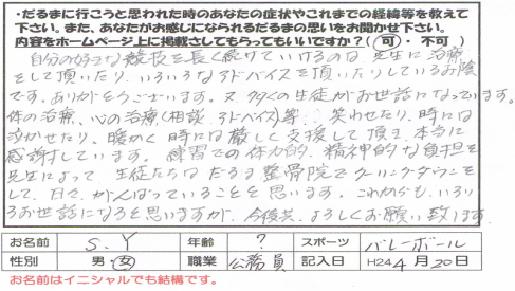 ・だるまに行こうと思われた時のあなたの症状やこれまでの経緯等を教えて
下さい。また、あなたがお感じになられるだるまの思いをお聞かせ下さい。
内容をホームページ上に掲載させてもらってもいいですか?( 可 ・ 不可 )
自分の好きな競技を長く続けていけるのは 先生に治療
をして頂いたり、いろいろなアドバイスを頂いたりしているお陰
です。ありがとうございます。又、多くの生徒がお世話になっています。
体の治療、心の治療(相談、アドバイス)等… 笑わせたり、時には
泣かせたり、暖かく 時には厳しく支援して頂き、本当に
感謝しています。 練習での体力的、精神的な負担を
先生によって 生徒たちは だるま整骨院でクーリングダウンを
して、日々、がんばっていることと思います。これからも、いろいろ
お世話になると思いますが、今後共、よろしくお願い致します。
お名前 S.Y 年齢 ? スポーツ バレーボール
性別 男・女 職業 公務員 記入日 H24 4 月 20 日
お名前はイニシャルでも結構です。